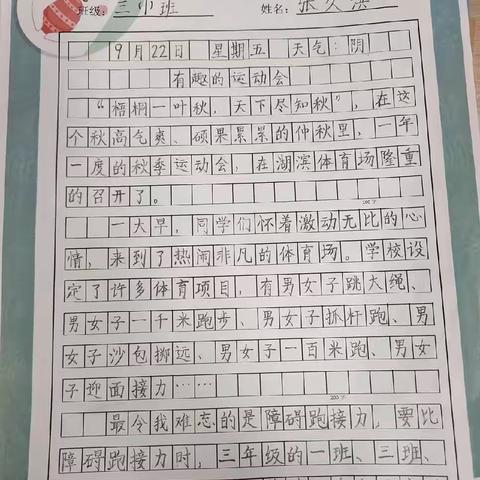 班级：三小班 姓名：张久洪
9月22日 星期五 天气：阴
有趣的运动会
“梧桐一叶秋，天下尽知秋”，在这
个秋高气爽、硕果累累的仲秋里，一年
一度的秋季运动会，在湖滨体育场隆重
的召开了。
一大早，同学们怀着激动无比的心
情，来到了热闹非凡的体育场。学校设
定了许多体育项目，有男女子跳大绳、
男女子一千米跑步、男女子抓杆跑、男
女子沙包掷远、男女子一百米跑、男女
子迎面接力……
最令我难忘的是障碍跑接力，要比
障碍跑接力时，三年级的一班、三班、